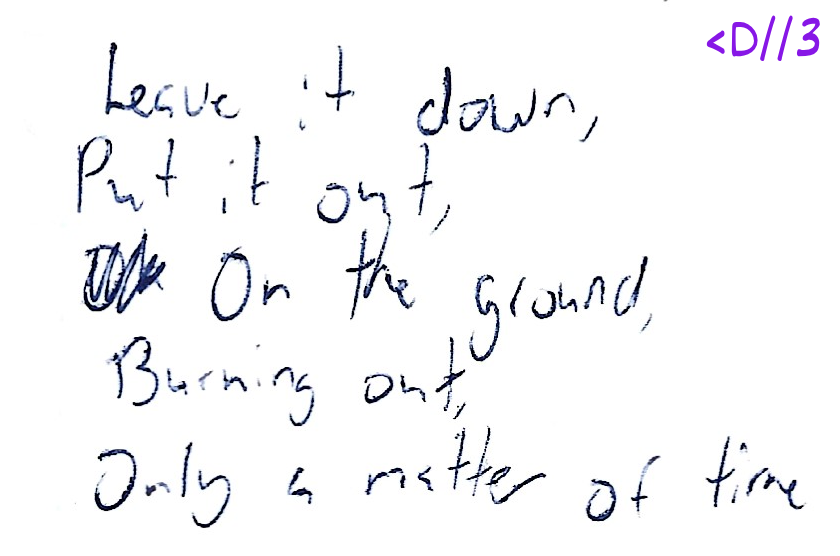 <D//3
Leave it down,
Put it out,
On the ground,
Burning out,
Only a matter of time